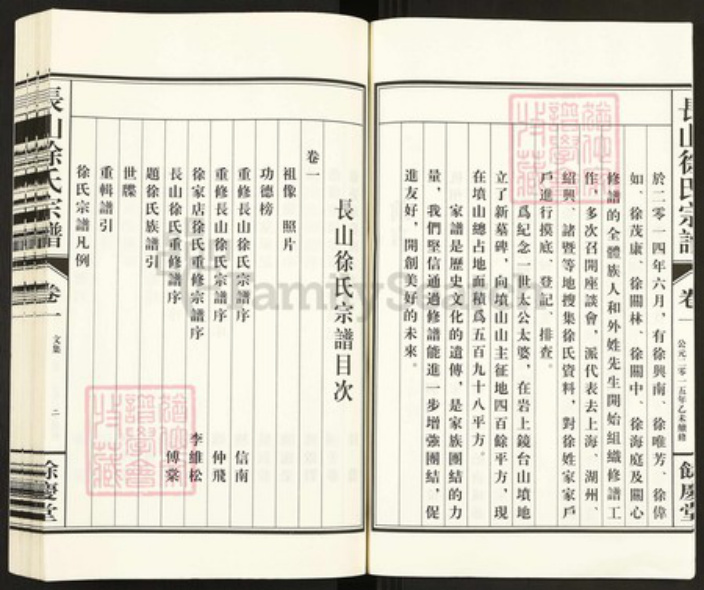 長山徐氏宗譜
卷一
公元二零一五年乙未續修
餘慶堂
於二零一四年六月，有徐興南、徐唯芳、徐偉
如、徐茂康、徐關林、徐關中、徐海庭及關心
修譜的全體族人和外姓先生開始組織修譜工
作，多次召開座談會，派代表去上海、湖州、
紹興、諸暨等地搜集徐氏資料，對徐姓家家戶
戶進行摸底、登記、排查。
爲紀念一世太公太婆，在岩上鏡台山墳地
立了新墓碑，向墳山山主征地四百餘平方，現
在墳山總占地面積爲五百九十八平方。
家譜是歷史文化的遺傳，是家族團結的力
量，我們堅信通過修譜能進一步增強團結，促
進友好，開創美好的未來。
長山徐氏宗譜目次
卷一
祖像 照片
功德榜
重修長山徐氏宗譜序 信南
重修長山徐氏宗譜序 仲飛
徐家店徐氏重修宗譜序 李維松
長山徐氏重修譜序 傅棠
題徐氏族譜引
世牒
重輯譜引
徐氏宗譜凡例
長山徐氏宗譜
卷一
文集
二
餘慶堂
FamilySearch